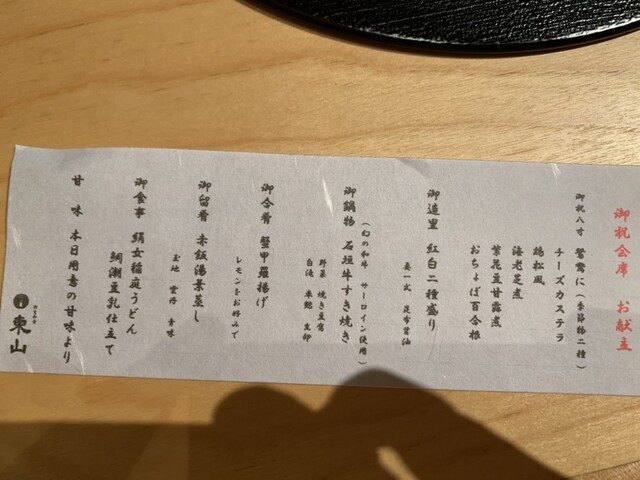 御祝会席　お献立
御祝八寸　鴛鴦に（季節物二種）
チーズカステラ
鶏松風
海老芝煮
紫花豆甘露煮
おちょぼ百合根
御造里　紅白二種盛り
妻一式　昆布醤油
御鍋物　石垣牛すき焼き
（幻の和牛　サーロイン使用）
野菜　焼き豆腐
白滝　車麩　玉卵
御合肴　蟹甲羅揚げ
レモンをお好みで
御留肴　赤飯湯葉蒸し
玉地　雲丹　香味
御食事　絹女稲庭うどん
鯛潮豆乳仕立て
甘　味　本日用意の甘味より
東山